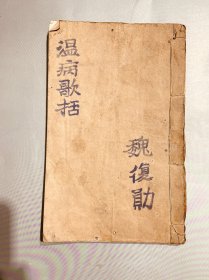 温病歌括
魏復勛